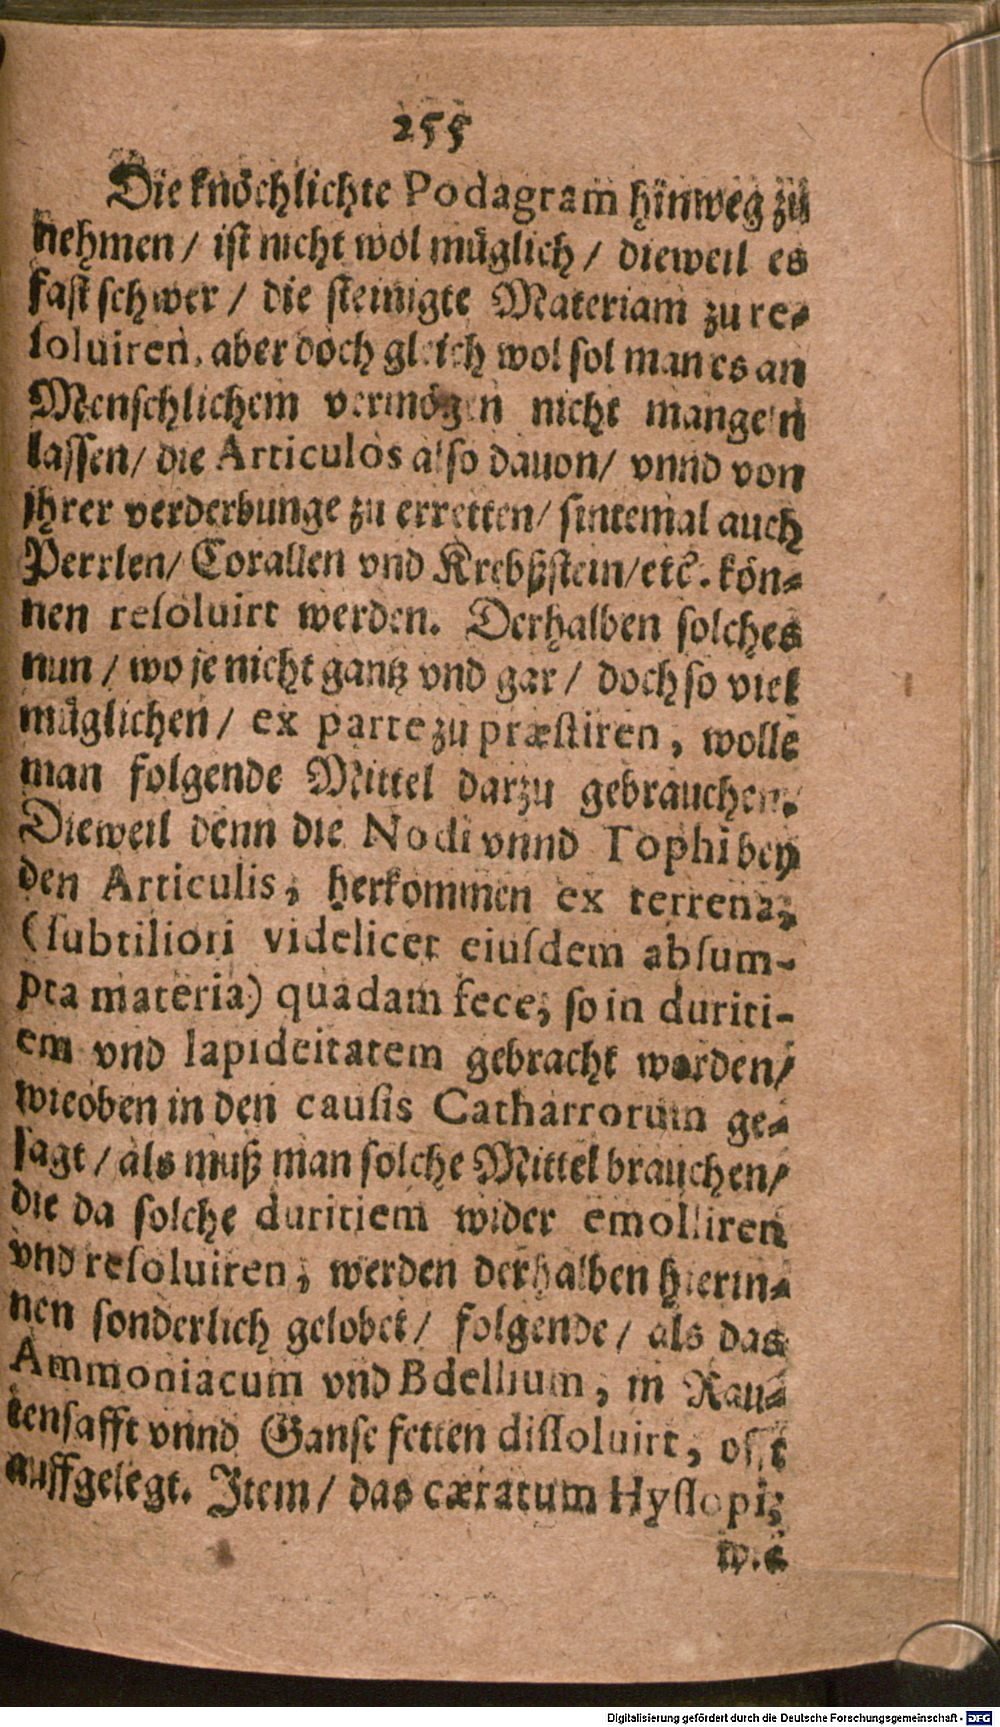 255
Die knöchlichte Podagram hinweg zu
nehmen / ist nicht wol müglich / dieweil es
fast schwer / die steinigte Materiam zu re-
soluiren, aber doch gleich wol sol man es an
Menschlichem vermögen nicht mangeln
lassen / die Articulos also dauon / vnnd von
jhrer verderbunge zu erretten / sintemal auch
Perrlen / Corallen vnd Krebßstein / etc. kön-
nen resoluirt werden. Derhalben solches
nun / wo je nicht gantz vnd gar / doch so viel
müglichen / ex parte zu præstiren, wolle
man folgende Mittel darzu gebrauchen.
Dieweil denn die Nodi vnnd Tophi bey
den Articulis, herkommen ex terrena,
(subtiliori videlicet eiusdem absum-
pta materia) quadam fece, so in duriti-
em vnd lapideitatem gebracht worden /
wie oben in den causis Catharrorum ge-
sagt / als muß man solche Mittel brauchen /
die da solche duritiem wider emolliren
vnd resoluiren, werden derhalben hierin-
nen sonderlich gelobet / folgende / als das
Ammoniacum vnd Bdellium, in Rau-
tensafft vnnd Ganse fetten dissoluirt, offt
auffgelegt. Item / das cæratum Hyssopi,
wie
Digitalisierung gefördert durch die Deutsche Forschungsgemeinschaft - DFG